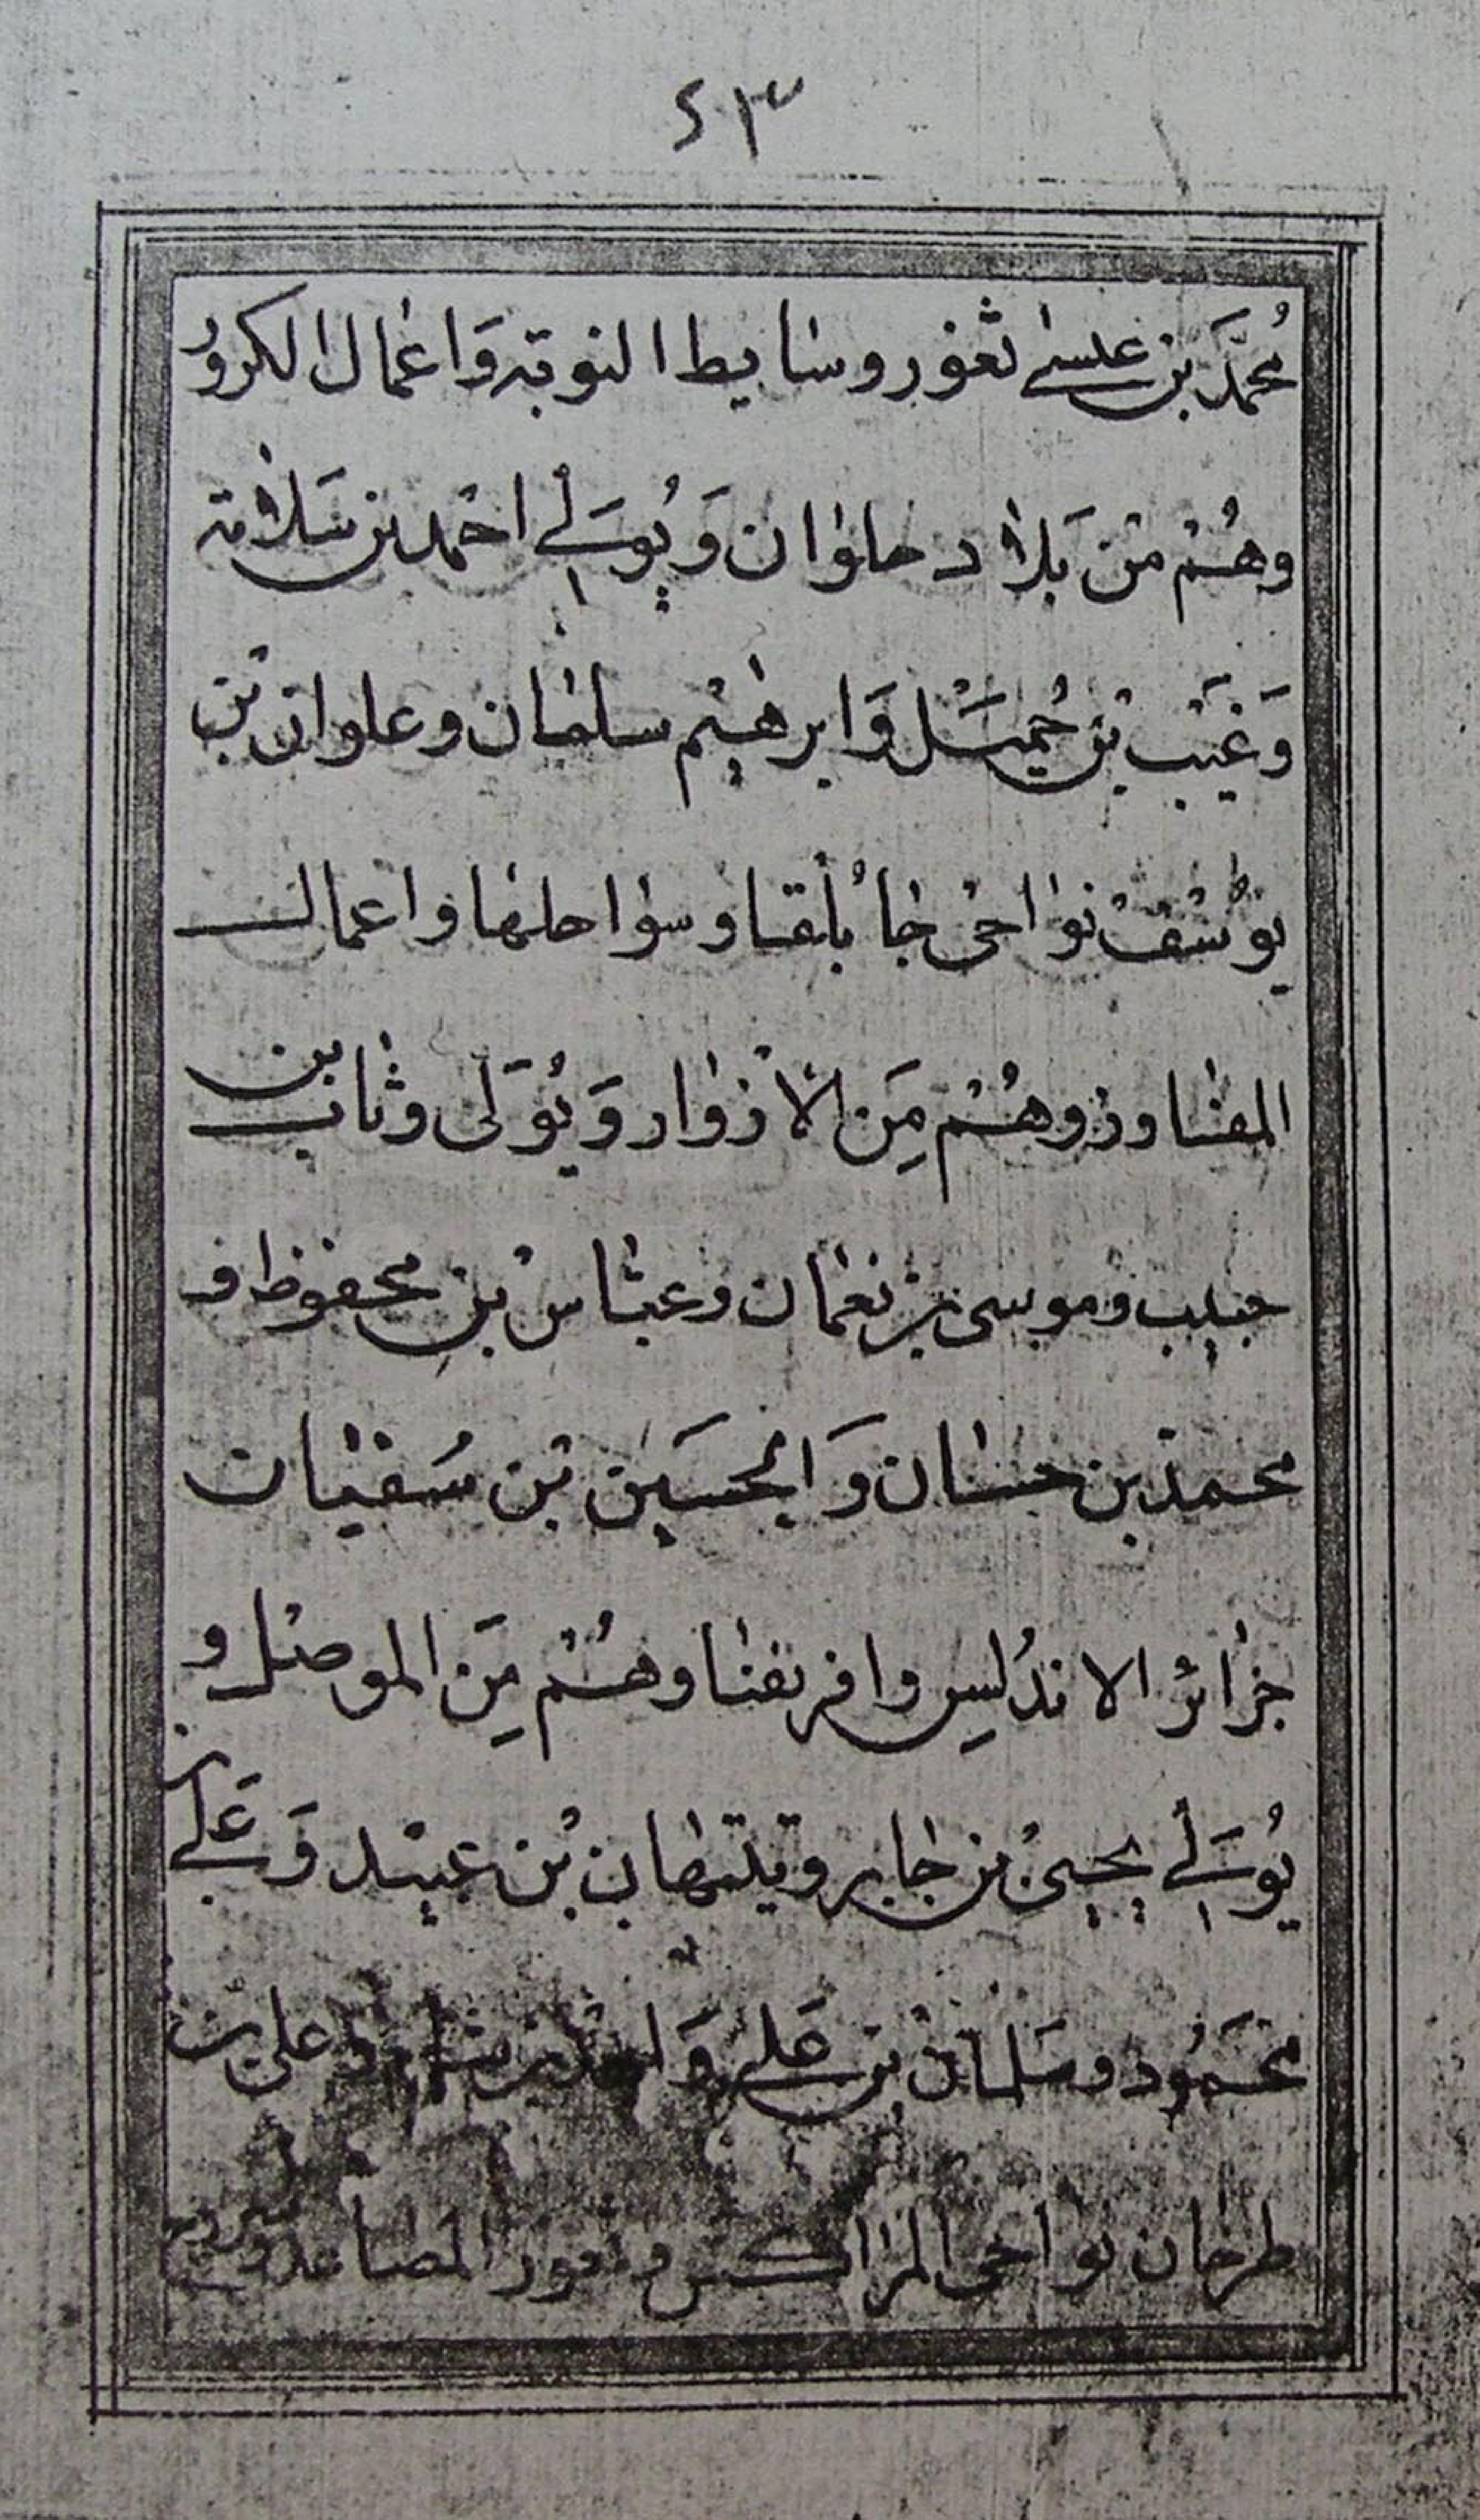 ٤١٣
مُحمَّد بن عيسى ثغور وسايط النوبة وَاعمال الكرور
وهُمْ مْن بَلاد حلوان وَيُوَلي احمد بن سَلامة
وَغَيَب بْن حُميَل وَابرهيم سلمان وعلوان بْن
يوسُف نواحى جابلقا وسواحلها واعمال
المفاوز وهُمْ مِن الازوار وَيُوَلى وثاب بن
حبيب وموسى بن نعمان وعباس بْن محفوظ و
محمد بن حسان وَالحسَين بْن سُفيان
جزائر الاندُلسِ وافريقيا وهُمْ مِن الموصل و
يُوَلي يحيىٰ بن جابر ونبهان بْن عبيد وَعَلي بن
محمود وسَلمان بْن عَلي وعلى بن
طرخان نواحى المراكش وثغور المصاعد